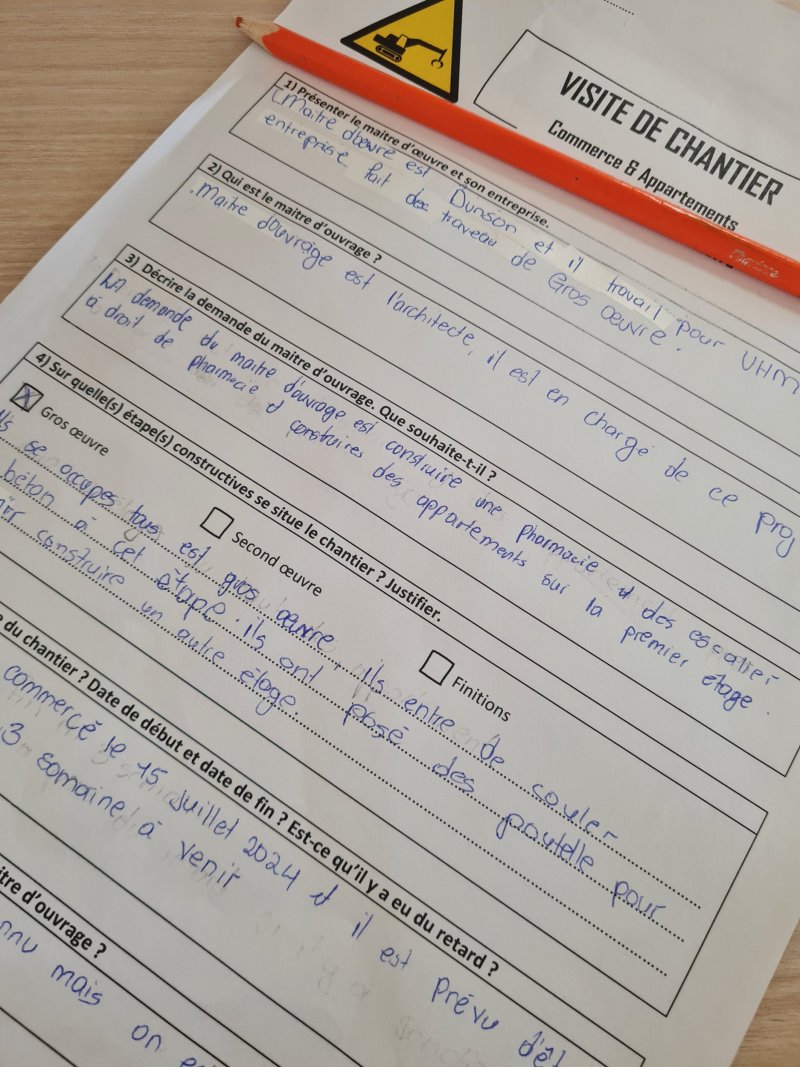 VISITE DE CHANTIER
Commerce & Appartements
1) Présenter le maître d'œuvre et son entreprise.
Maitre d'œuvre est Dunson et il travail pour UHM
entreprise fait des traveau de Gros Oeuvre.
2) Qui est le maitre d'ouvrage ?
.Maitre d'ouvrage est l'architecte, il est en charge de ce proj
3) Décrire la demande du maitre d'ouvrage. Que souhaite-t-il ?
LA demande du maitre d'ouvrage est construire une pharmacie et des escalier
à droit de pharmacie et construires des appartements sur la premier étage.
4) Sur quelle(s) étape(s) constructives se situe le chantier ? Justifier.
Gros œuvre
Second œuvre
Finitions
ils se occupes tous est gros œuvre, ils entre de couler
béton a cet étape. ils ont posé des poutelle pour
construire un autre étage.
du chantier ? Date de début et date de fin ? Est-ce qu'il y a eu du retard ?
commercé le 15 juillet 2024 et il est prévu
3 semaine à venir
itre d'ouvrage ?
mais on